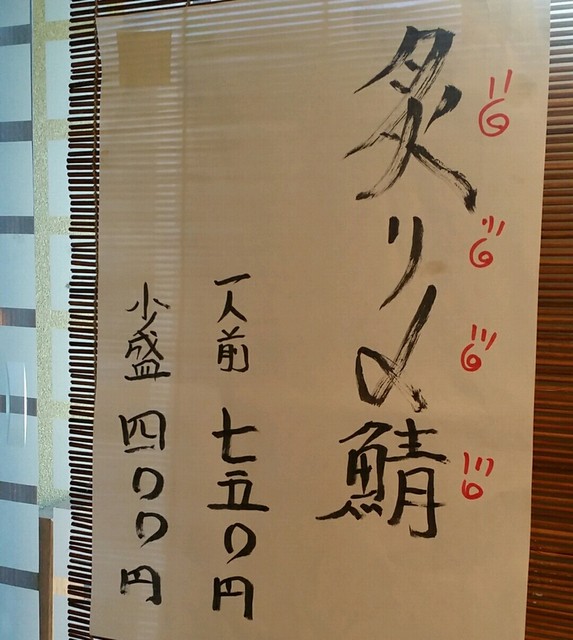 炙り〆鯖
一人前 七五〇円
小盛 四〇〇円